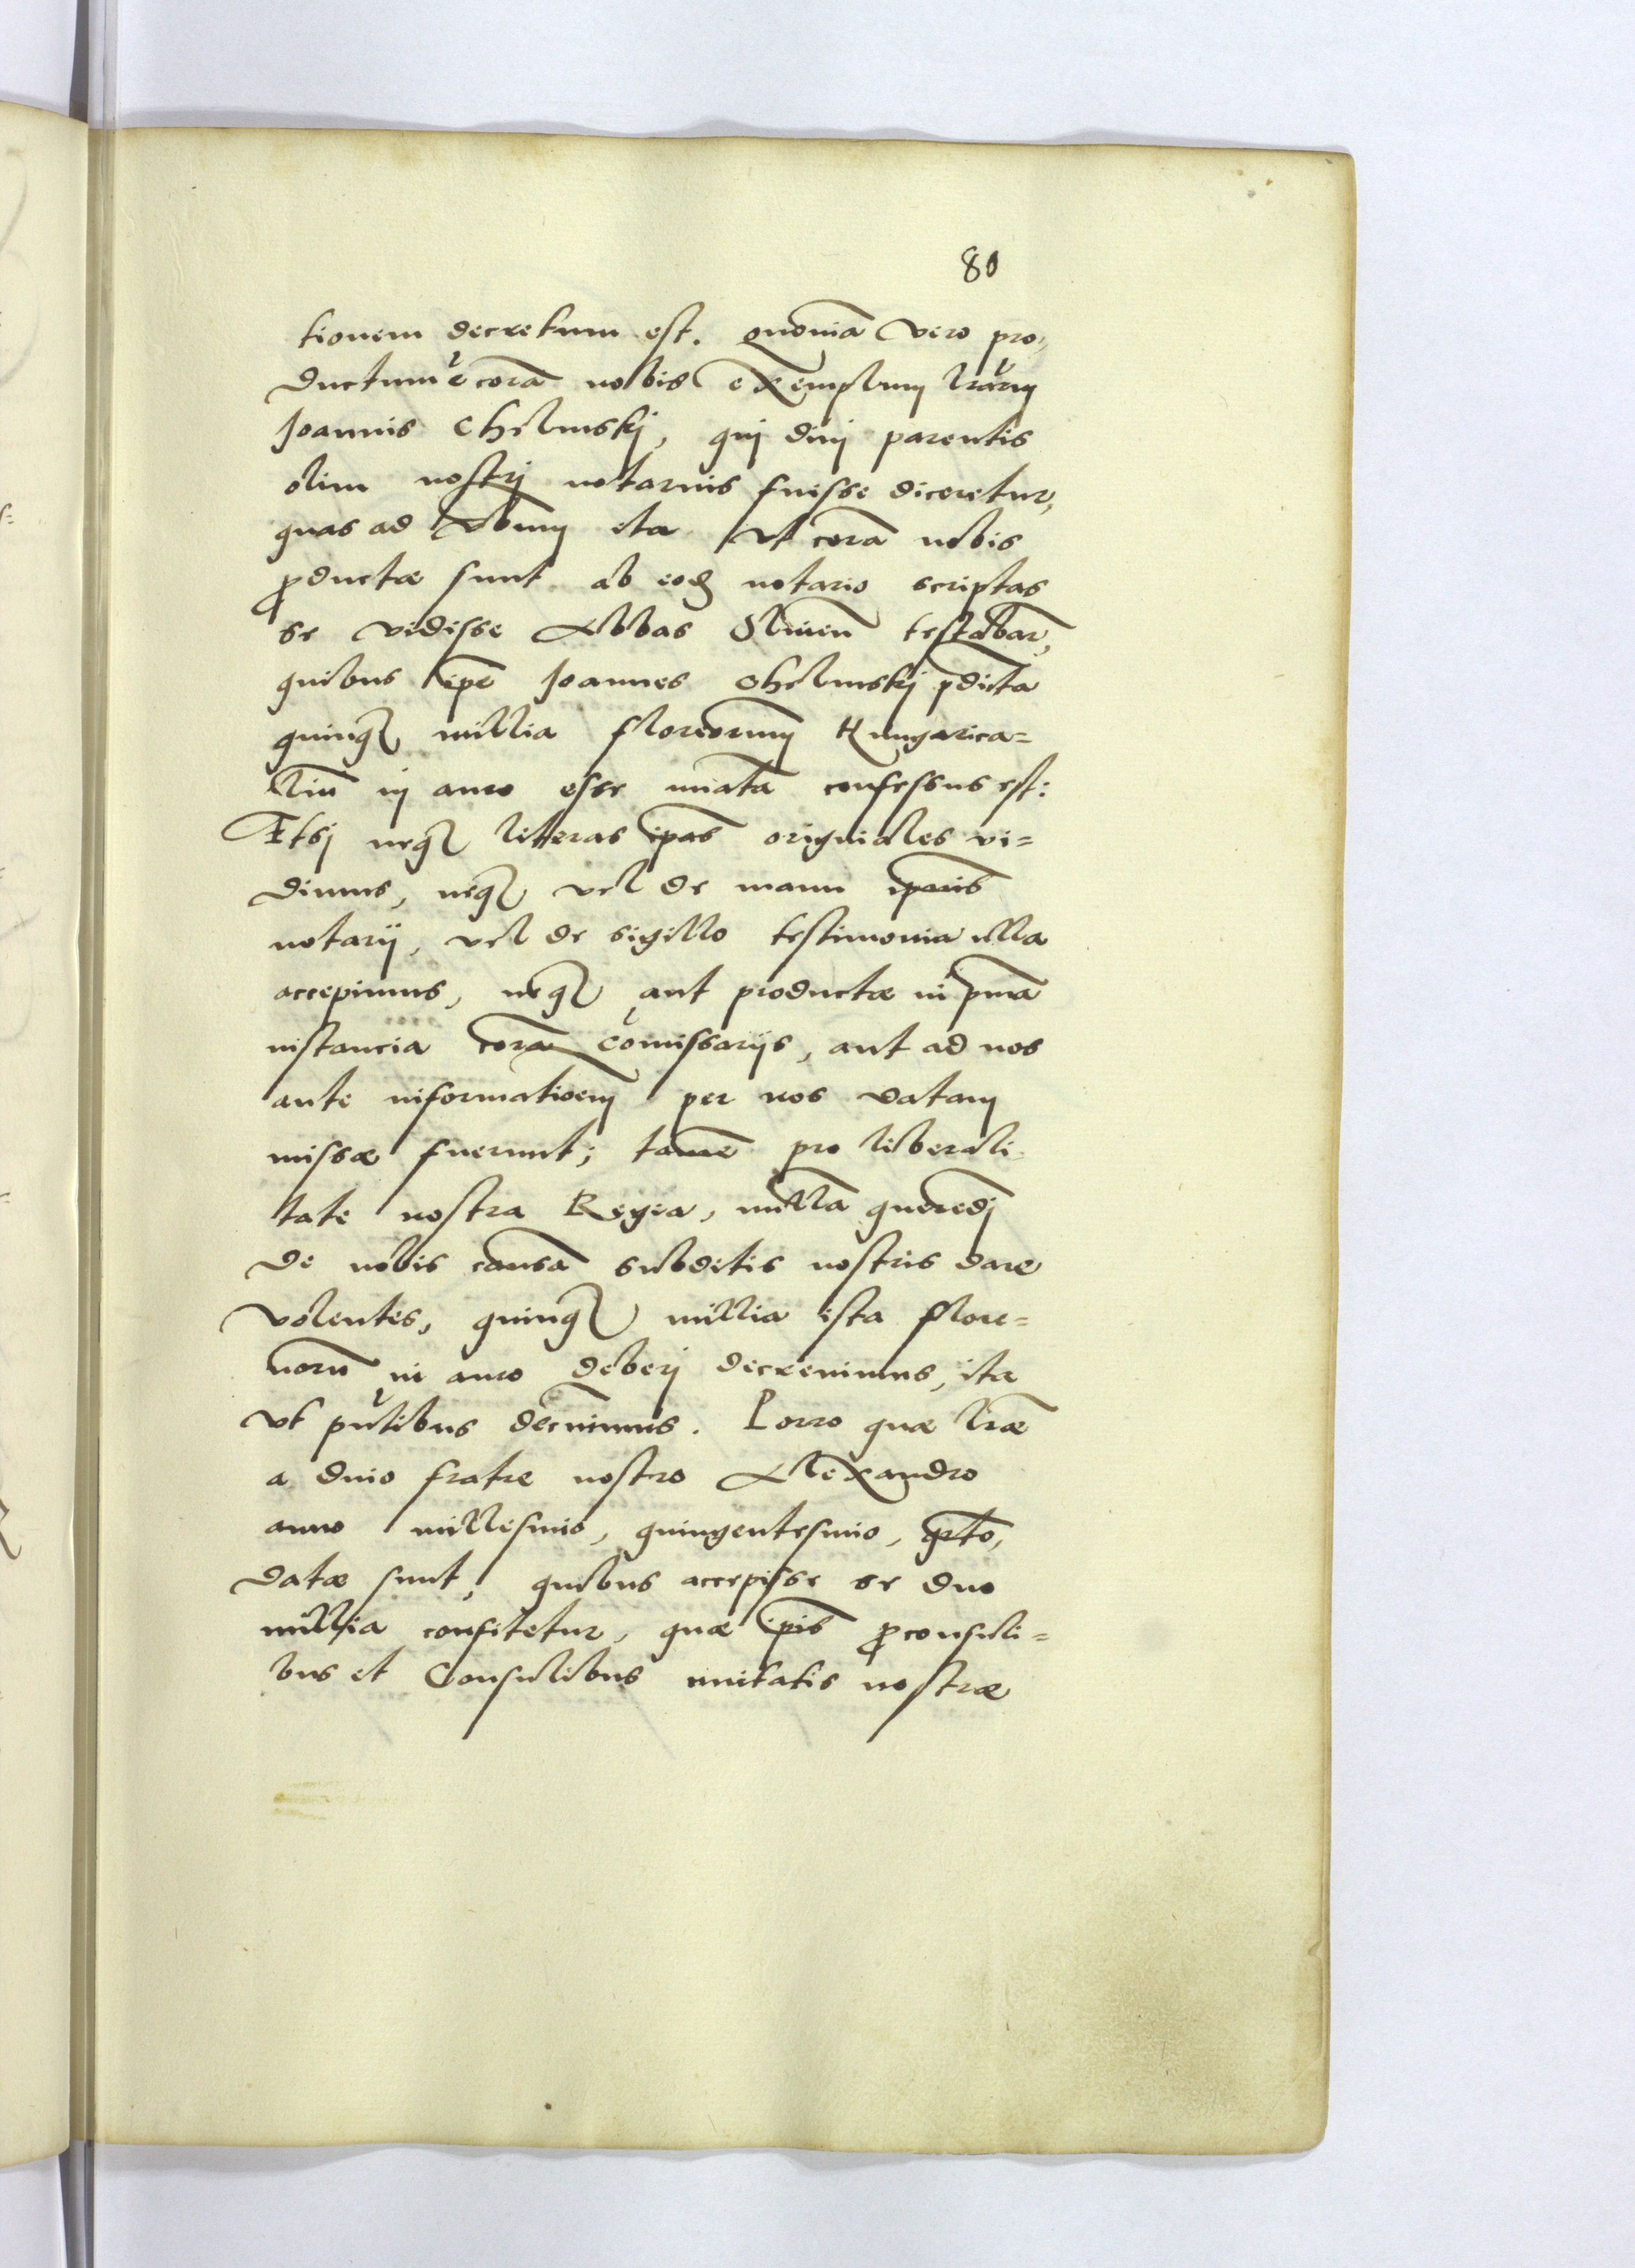 80
tionem decretum est. quoniã vero pro,
ductum ẽ corã nobis exemplum lrarum
Joannis Chelmskj, quj diuj parentis
olim nostrj notarius fuisse diceretur,
quas ad vbum ita vt corã nobis
ꝓductæ sunt ab eodẽ notario scriptas
se vidisse Abbas Oliuen testabar,
quibus ipe Joannes Chelmskj pdicta
quinqȝ millia florenorum Hungarica=
liũ in auro esse mutata confessus est:
Etsj neqȝ litteras ipas originales vi=
dimus, neqȝ vel de manu ipsius
notarij, vel de sigillo testimonia ulla
accepimus, neqȝ aut productæ in pma
instancia corã comissarijs, aut ad nos
ante informatioem per nos datam
missæ fuerunt; tamẽ pro liberali
tate nostra Regia, nullã querẽdj
de nobis causã subditis nostris dare
volentes, quinqȝ millia ista flore=
norũ in auro deberj decreuimus, ita
vt pñtibus decnimus. Porro quæ lræ
a diuo fratre nostro Alexandro
anno millesimo, quingentesimo, qrto,
datæ sunt, quibus accepisse se duo
millia confitetur, quæ ipis ꝓconsuli=
bus et Consulibus ciuitatis nostræ